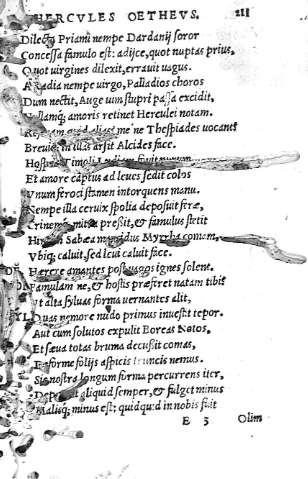 HERCVLES OETHEVS. 111
Dilecta Priami nempe Dardanij soror
Concessa famulo est: adijce, quot nuptas prius,
Quot virgines dilexit, errauit uagus.
nempe uirgo, Palladios choros
Dum nectit, Auge uim stupri passa excidit,
amoris retinet Herculei notam.
me ne Thespiades uocant
Breui in illas arsit Alcides face.
Hospes Timoli
Et amore captus ad leues sedit colos
Vnum feroci stamen intorquens manu.
Nempe illa ceruix spolia deposuit feræ,
mitra pressit, & famulus stetit
Sabæa Myrrha comam,
Vbique caluit, sed leui caluit face.
Hærere amantes post uagos ignes solent.
Famulam ne, & hostis præferet natam tibi?
Vt alta syluas forma uernantes alit,
Quas nemore nudo primus inuestit tepor.
Aut cum solutos expulit Boreas Notos.
Et sæua totas bruma decussit comas,
folijs aspicis truncis nemus.
Sic nostra longum forma percurrens iter,
aliquid semper, & fulget minus
minus est: quidquid in nobis fuit
E 3 Olim